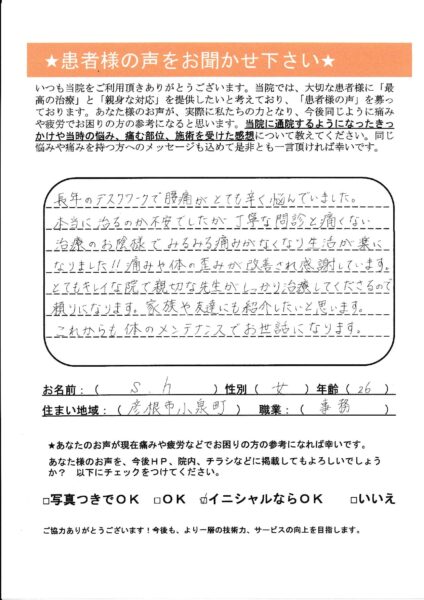 ★患者様の声をお聞かせ下さい★
いつも当院をご利用頂きありがとうございます。当院では、大切な患者様に「最
高の治療」と「親身な対応」を提供したいと考えており、「患者様の声」を募っ
ております。あなた様のお声が、実際に私たちの力となり、今後同じように痛み
や疲労でお困りの方の参考になると思います。当院に通院するようになったきっ
かけや当時の悩み、痛む部位、施術を受けた感想について教えてください。同じ
悩みや痛みを持つ方へのメッセージも込めて是非とも一言頂ければ幸いです。
長年のデスクワークで腰痛がとても辛く悩んでいました。
本当に治るのか不安でしたが丁寧な問診と痛くない
治療のお陰様でみるみる痛みがなくなり生活が楽に
なりました!!痛みや体の歪みが改善され感謝しています。
とてもキレイな院で親切な先生がしっかり治療してくださるので
頼りになります。家族や友達にも紹介したいと思います。
これからも体のメンテナンスでお世話になります。
お名前：（ S.h ）性別（ 女 ）年齢（ 26 ）
住まい地域：（ 彦根市小泉町 ） 職業：（ 事務 ）
★あなたのお声が現在痛みや疲労などでお困りの方の参考になれば幸いです。
あなた様のお声を、今後ＨＰ、院内、チラシなどに掲載してもよろしいでしょう
か？ 以下にチェックをつけてください。
□写真つきでＯＫ □ＯＫ ☑イニシャルならＯＫ □いいえ
ご協力ありがとうございます！今後も、より一層の技術力、サービスの向上を目指します。